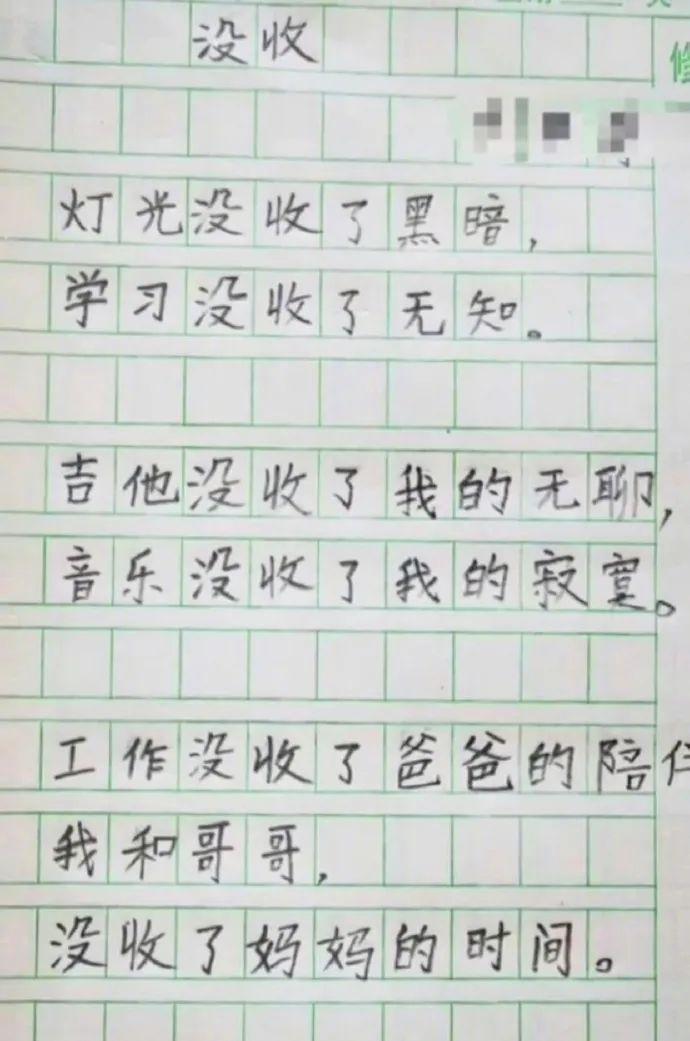 没收
灯光没收了黑暗，
学习没收了无知。
吉他没收了我的无聊，
音乐没收了我的寂寞。
工作没收了爸爸的陪伴
我和哥哥，
没收了妈妈的时间。